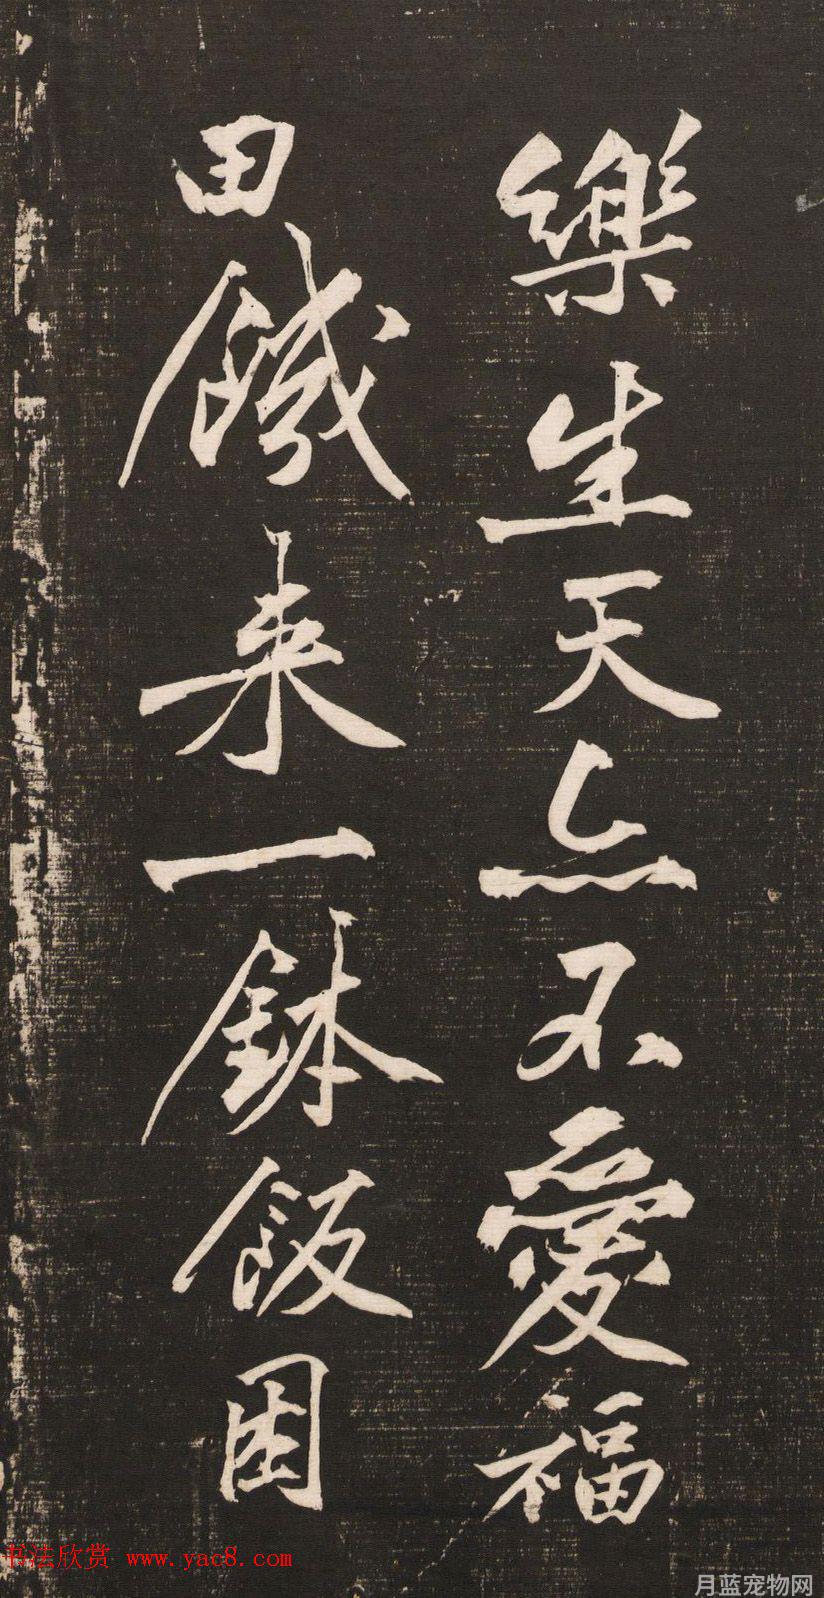 樂生天亦不愛福
田饑来一鉢飯困
书法欣赏 www.yac8.com
月蓝宠物网